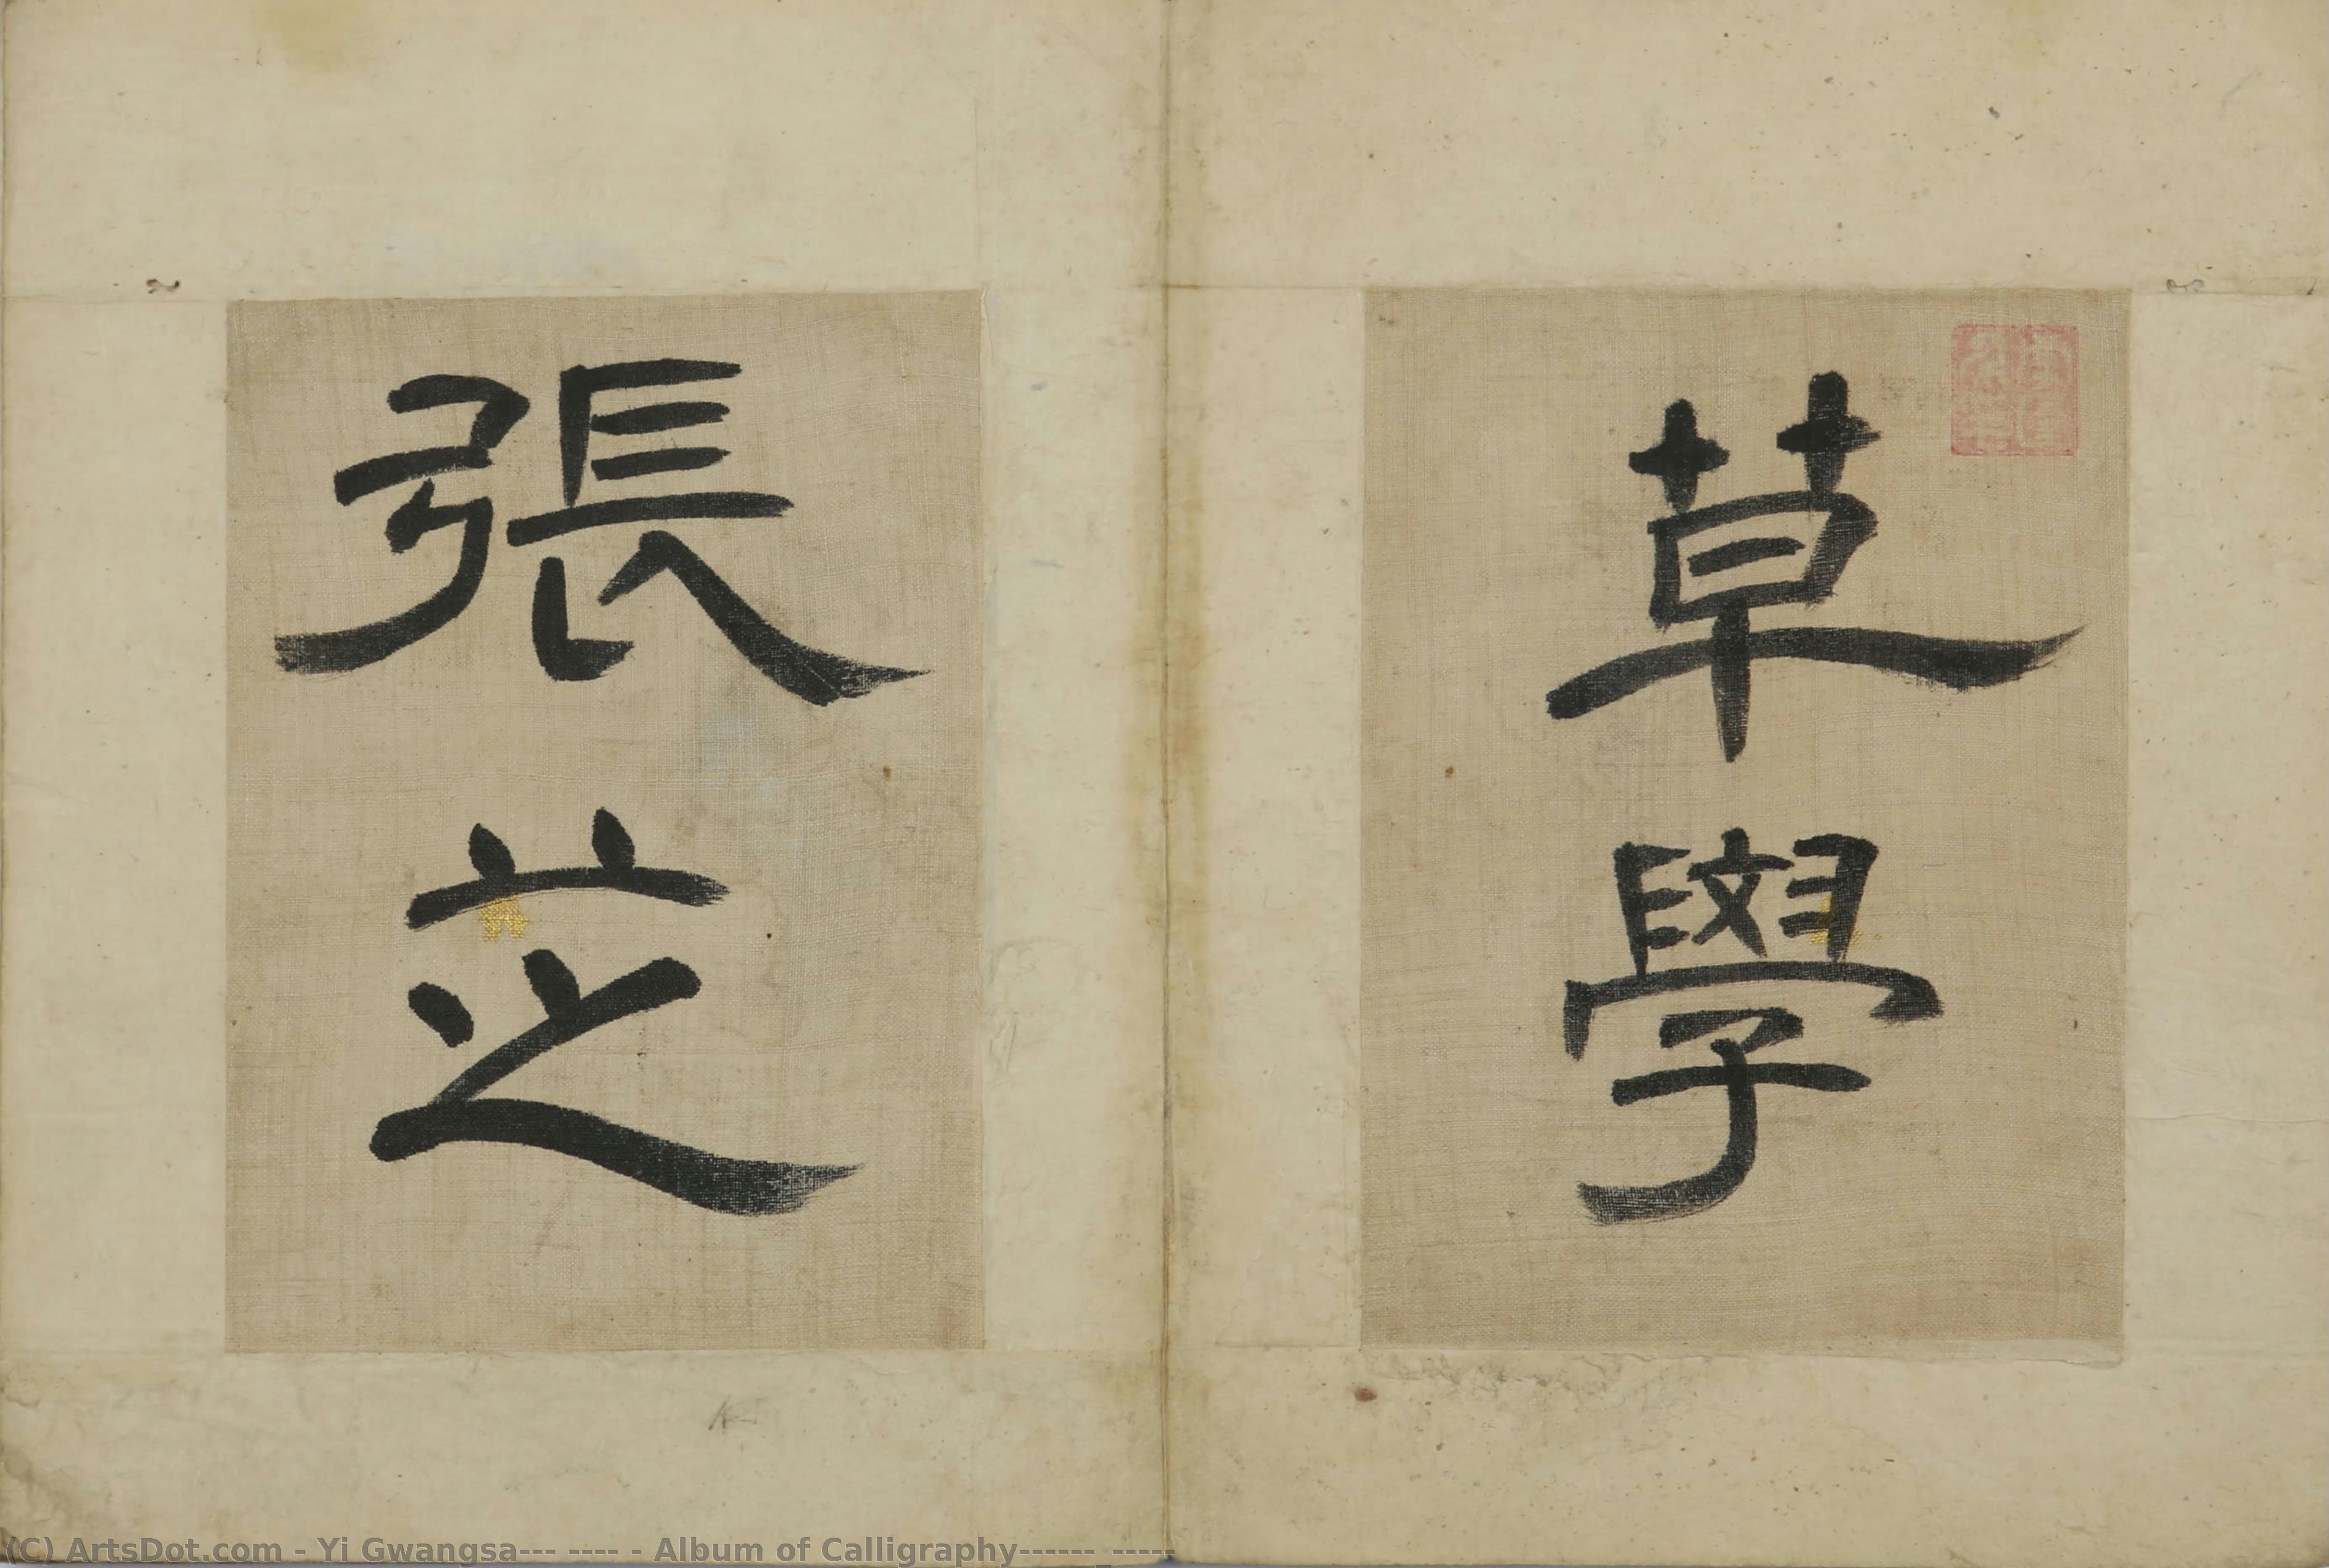 草學
張芝
(C) ArtsDot.com - Yi Gwangsa--- ---- - Album of Calligraphy------_-----